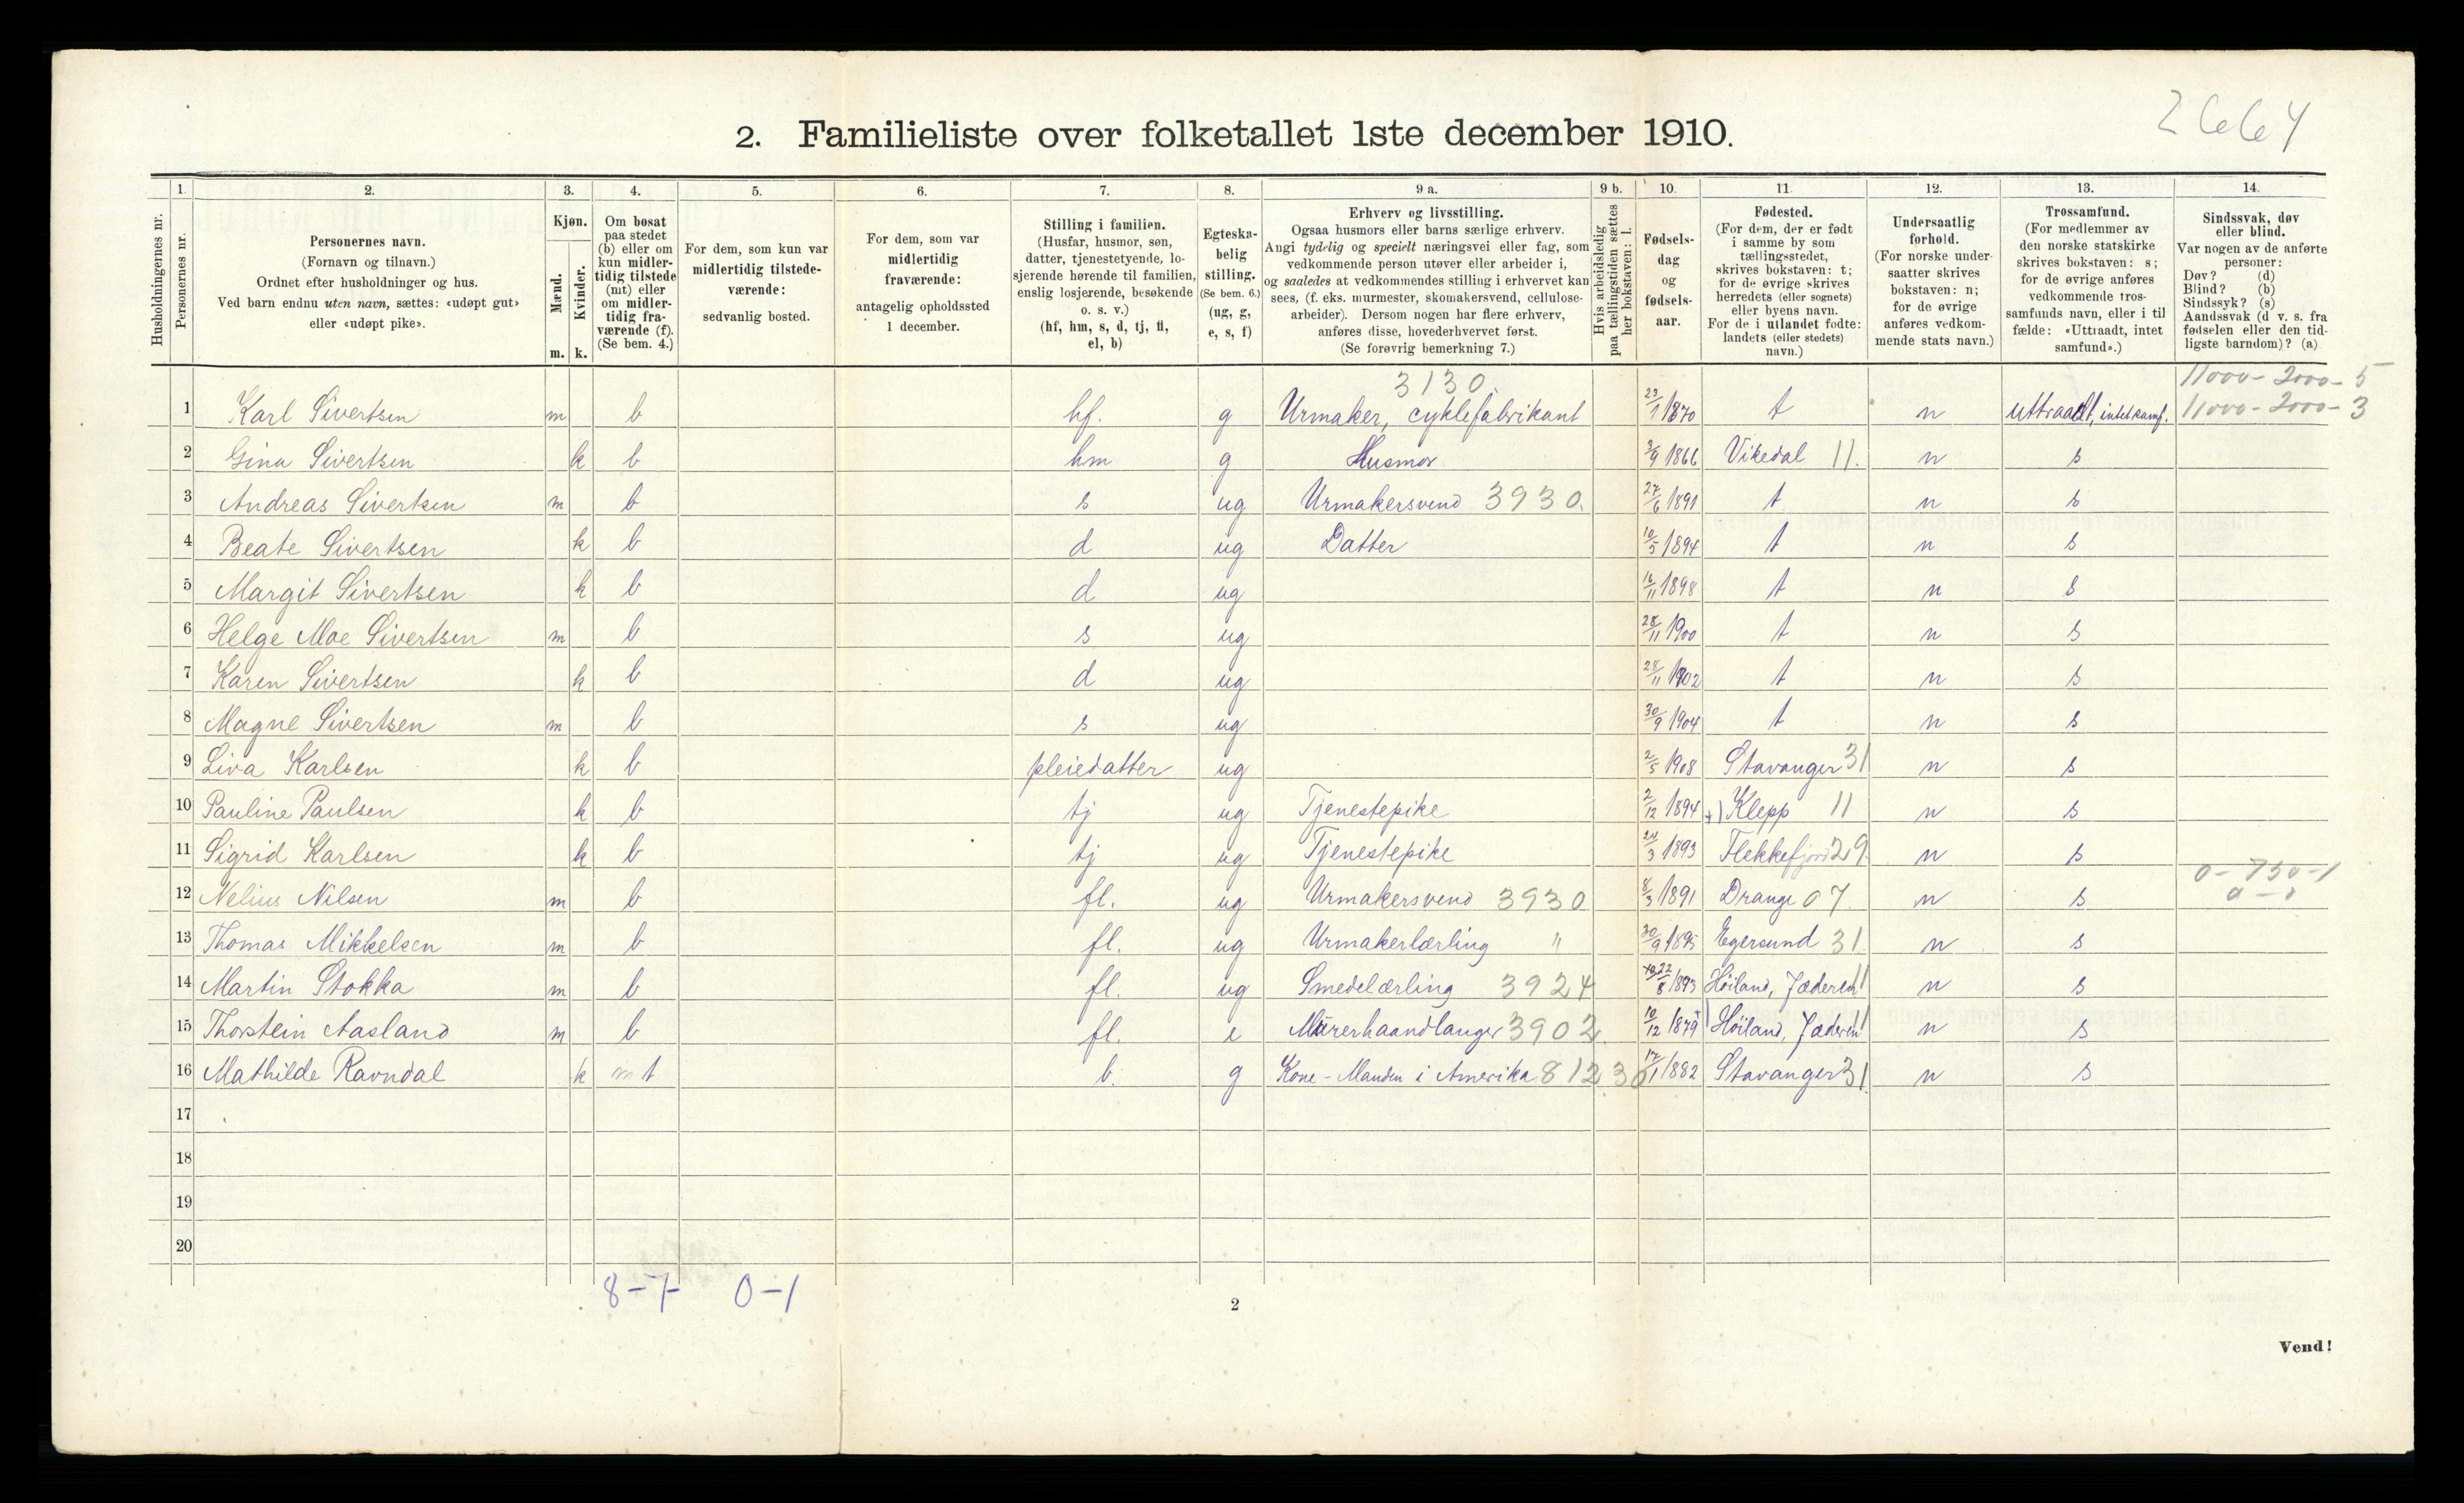 2664
2. Familieliste over folketallet 1ste december 1910.
Husholdningernes nr.
1.
Personernes nr.
2.
Personernes navn.
(Fornavn og tilnavn.)
Ordnet efter husholdninger og hus.
Ved barn endnu uten navn, sættes: «udøpt gut»
eller «udøpt pike».
3.
Kjøn.
Mænd.
Kvinder.
m. k.
4.
Om bosat
paa stedet
(b) eller om
kun midler-
tidig tilstede
(mt) eller
om midler-
tidig fra-
værende (f).
(Se bem. 4.)
5.
For dem, som kun var
midlertidig tilstede-
værende:
sedvanlig bosted.
6.
For dem, som var
midlertidig
fraværende:
antagelig opholdssted
1 december.
7.
Stilling i familien.
(Husfar, husmor, søn,
datter, tjenestetyende, lo-
sjerende hørende til familien,
enslig losjerende, besøkende
o. s. v.)
(hf, hm, s, d, tj, fl,
el, b)
8.
Egteska-
belig
stilling.
(Se bem. 6.)
(ug, g,
e, s, f)
9 a.
Erhverv og livsstilling.
Ogsaa husmors eller barns særlige erhverv.
Angi tydelig og specielt næringsvei eller fag, som
vedkommende person utøver eller arbeider i,
og saaledes at vedkommendes stilling i erhvervet kan
sees, (f. eks. murmester, skomakersvend, cellulose-
arbeider). Dersom nogen har flere erhverv,
anføres disse, hovederhvervet først.
(Se forøvrig bemerkning 7.)
9 b.
Hvis arbeidsledig
paa tællingstiden sættes
her bokstaven: l.
10.
Fødsels-
dag
og
fødsels-
aar.
11.
Fødested.
(For dem, der er født
i samme by som
tællingsstedet,
skrives bokstaven: t;
for de øvrige skrives
herredets (eller sognets)
eller byens navn.
For de i utlandet fødte:
landets (eller stedets)
navn.)
12.
Undersaatlig
forhold.
(For norske under-
saatter skrives
bokstaven: n;
for de øvrige
anføres vedkom-
mende stats navn.)
13.
Trossamfund.
(For medlemmer av
den norske statskirke
skrives bokstaven: s;
for de øvrige anføres
vedkommende tros-
samfunds navn, eller i til-
fælde: «Uttraadt, intet
samfund».)
14.
Sindssvak, døv
eller blind.
Var nogen av de anførte
personer:
Døv? (d)
Blind? (b)
Sindssyk? (s)
Aandssvak (d v. s. fra
fødselen eller den tid-
ligste barndom)? (a)
3130. 11000-2000-5
1 Karl Sivertsen m b hf. g Urmaker, cyklefabrikant 23/1 1870 t n uttraadt, intet samf. 11000-2000-3
2 Gina Sivertsen k b hm g Husmor 3/9 1866 Vikedal 11. n s
3 Andreas Sivertsen m b s ug Urmakersvend 3930. 27/6 1891 t n s
4 Beate Sivertsen k b d ug Datter 10/5 1894 t n s
5 Margit Sivertsen k b d ug 16/11 1898 t n s
6 Helge Moe Sivertsen m b s ug 28/11 1900 t n s
7 Karen Sivertsen k b d ug 28/11 1902 t n s
8 Magne Sivertsen m b s ug 30/9 1904 t n s
9 Liva Karlsen k b pleiedatter ug 2/5 1908 Stavanger 31 n s
10 Pauline Paulsen k b tj ug Tjenestepike 2/12 1894 +) Klepp 11 n s
11 Sigrid Karlsen k b tj ug Tjenestepike 24/3 1893 Flekkefjord 29 n s
0-750-1
12 Nelius Nilsen m b fl. ug Urmakersvend 3930 8/3 1891 Drange 07 n s
13 Thomas Mikkelsen m b fl. ug Urmakerlærling " 30/9 1895 Egersund 31 n s
14 Martin Stokka m b fl. ug Smedelærling 3924 22/8 1893 Höiland, Jæderen 11 n s
15 Thorstein Aasland m b fl. e Murerhaandlanger 3902. 10/12 1879 Höiland, Jæderen 11 n s
16 Mathilde Ravndal k mt b. g Kone - Manden i Amerika 812.30 17/1 1882 Stavanger 31 n s
17
18
19
20
8-7 0-1
2
Vend!